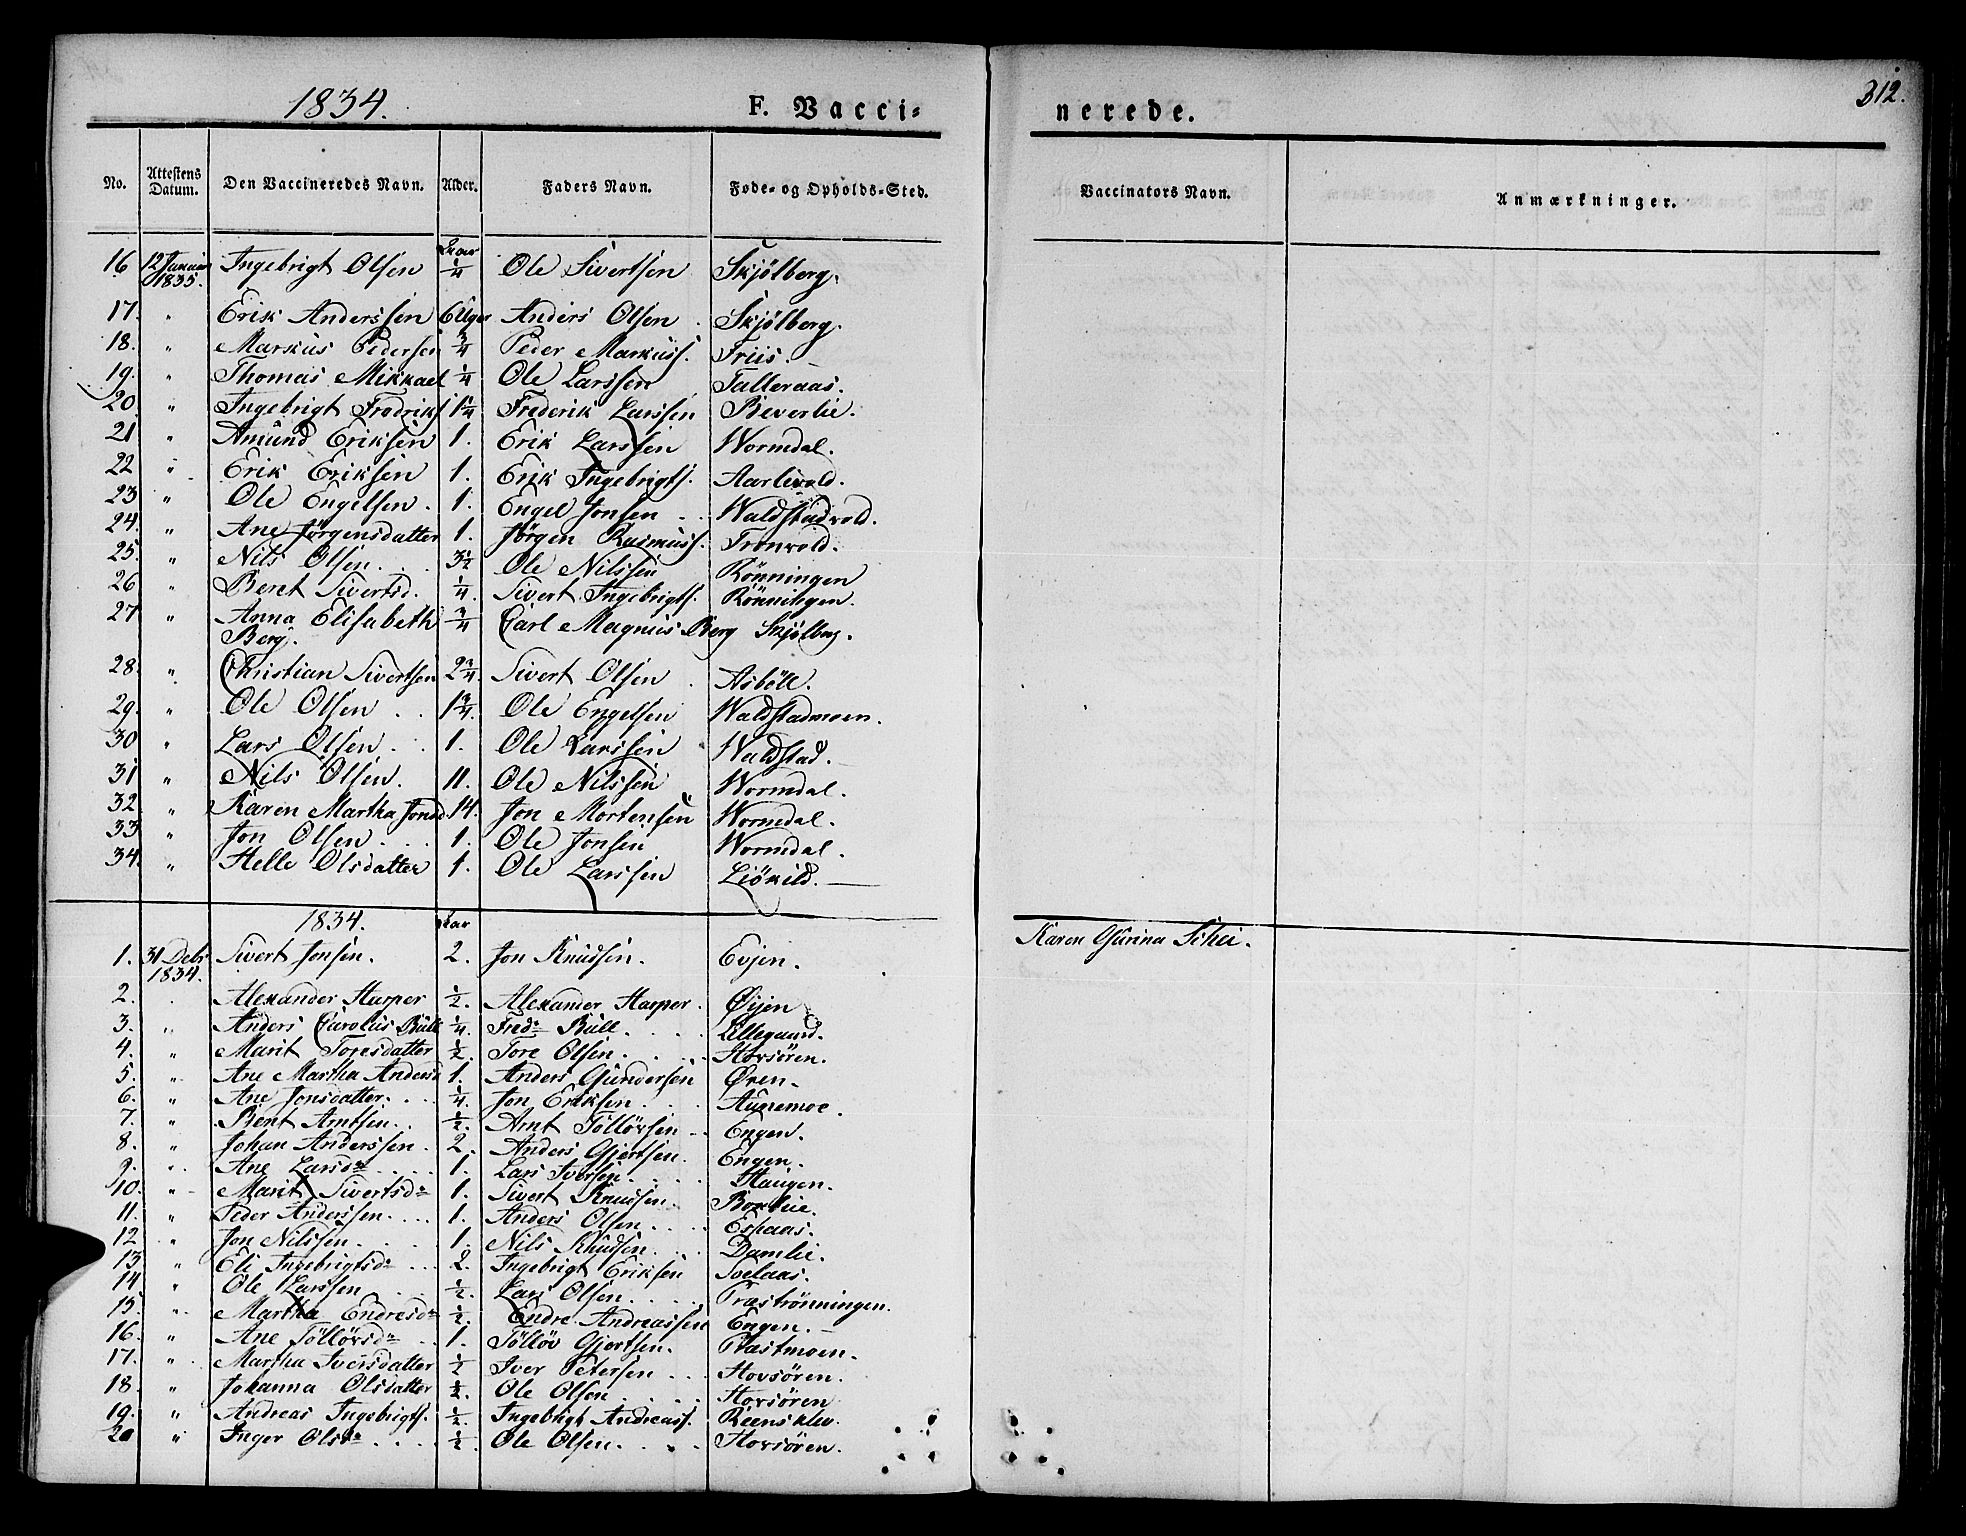 1834.
F. Vacci-
nerede.
312.
No. Attestens Datum. Den Vaccineredes Navn. Alder. Faders Navn. Føde- og Opholds-Sted. Vaccinators Navn. Anmærkninger.
16 12 Januar 1835. Ingebrigt Olsen 1/4 Ole Sivertsen Skjölberg.
17. " Erik Anderssen 6 Uger Anders Olsen Skjölberg.
18. " Markus Pedersen 3/4 Peder Markuss. Friis.
19. " Thomas Mikkael 1/4 Ole Larssen Talleraas.
20 " Ingebrigt Fredriks. 1 1/4 Frederik Larssen Beverlie.
21 " Amund Eriksen 1. Erik Larssen Wormdal.
22 " Erik Eriksen 1. Erik Ingebrigts. Aarlivold.
23 " Ole Engelsen. 1. Engel Jonsen Waldstadvold.
24. " Ane Jörgensdatter 1. Jörgen Rasmuss. Tronvold.
25. " Nils Olsen. 3 1/2 Ole Nilssen Rönningen
26 " Beret Sivertsd. 1/4. Sivert Ingebrigts. Rönningen.
27 " Anna Elisabeth Berg. 3/4 Carl Magnus Berg Skjölberg.
28. " Christian Sivertsen 2 3/4. Sivert Olsen Asböll.
29. " Ole Olsen 1 3/4. Ole Engelsen Waldstadmoen.
30 " Lars Olsen 1. Ole Larssen Waldstad.
31 " Nils Olsen. 11. Ole Nilssen Wormdal.
32 " Karen Martha Jonsd. 14. Jon Mortensen Wormdal.
33 " Jon Olsen 1. Ole Jonsen Wormdal.
34 " Helle Olsdatter 1. Ole Larssen Liökild.
1834. Aar
1. 31 Debr 1834. Sivert Jonsen. 2. Jon Knudsen. Evjen. Karen Gurina Schei.
2. Alexander Harper 1/2. Alexander Harper. Øyen
3. " Anders Carolus Bull 1/4. Fred. Bull. Lillegaard.
4. " Marit Toresdatter 1/2. Tore Olsen. Hovsören.
5. " Ane Martha Andersd 1. Anders Gundersen Øren.
6. " Ane Jonsdatter. 1/4. Jon Eriksen. Aunemoe.
7. " Bent Arntsen. 1/2. Arnt Töllövsen Engen.
8. " Johan Anderssen. 2. Anders Gjertsen. Engen.
9. " Ane Larsdr 1. Lars Iversen. Haugen.
10. " Marit Sivertsdr 1. Sivert Knudsen. Borlie.
11. " Peder Anderssen. 1. Anders Olsen Espaas.
12 " Jon Nilssen. 1. Nils Knudsen. Damlie.
13. " Eli Ingebrigtsdr 2. Ingebrigt Eriksen Soelaas.
14 " Ole Larssen 1/2. Lars Olsen. Træströnningen.
15. " Martha Endresdr 1/2. Endre Andreassen Engen.
16. " Ane Töllövsdr 1. Töllöv Gjertsen. Plæstmoen.
17. " Martha Iversdatter 1/2 Iver Petersen Hovsören.
18. " Johanna Olsdatter 1/2. Ole Olsen Hovsören
19. " Andreas Ingebrigts. 1/2. Ingebrigt Andreass. Reensklev.
20 " Inger Olsdr 1/2. Ole Olsen. Hovsören.